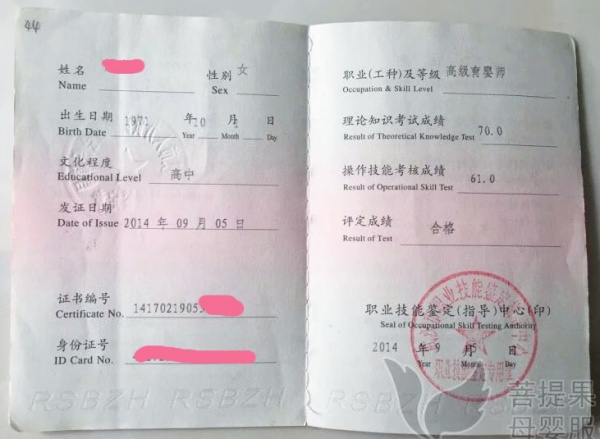 44
姓名
Name
性别 女
Sex
出生日期 1971 年 10 月 日
Birth Date Year Month Day
文化程度
Educational Level 高中
发证日期
Date of Issue 2014 年 09 月 05 日
证书编号
Certificate No. 1417021905
身份证号
ID Card No.
RSBZH RSBZH RSBZH
职业(工种)及等级 高级育婴师
Occupation & Skill Level
理论知识考试成绩
Result of Theoretical Knowledge Test 70.0
操作技能考核成绩
Result of Operational Skill Test 61.0
评定成绩
Result of Test 合格
职业技能鉴定(指导)中心(印)
Seal of Occupational Skill Testing Authority
2014 年 9 月 5 日
Year Month Day
RSBZH
菩提果
母婴服